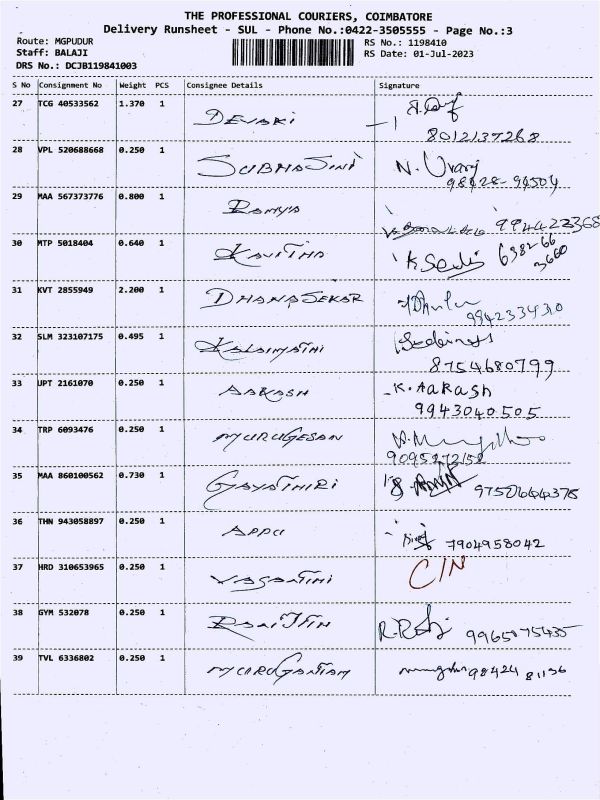 THE PROFESSIONAL COURIERS, COIMBATORE
Delivery Runsheet - SUL - Phone No.:0422-3505555 - Page No.:3
Route: MGPUDUR RS No.: 1198410
Staff: BALAJI RS Date: 01-Jul-2023
DRS No.: DCJB119841003
S No Consignment No Weight PCS Consignee Details Signature
27 TCG 40533562 1.370 1 DEVAKI
8012137268
28 VPL 520688668 0.250 1 SUBHASINI N.
98428-94504
29 MAA 567373776 0.800 1 RAMYA 994422368
30 MTP 5018404 0.640 1 KAVITHA K
638266
3660
31 KVT 2855949 2.200 1 DHANASEKAR
9942334310
32 SLM 323107175 0.495 1 KALAIMATHI
8754680799
33 UPT 2161070 0.250 1 AAKASH K. AaKASh
9943040505
34 TRP 6093476 0.250 1 MURUGESAN
9095272158
35 MAA 860100562 0.730 1 GAYATHIRI 9750644375
36 THN 943058897 0.250 1 APPU 7904958042
37 HRD 310653965 0.250 1 VASANTHI C/N
38 GYM 532078 0.250 1 9965075435
39 TVL 6336802 0.250 1 MURUGANTHAM 98424 81136